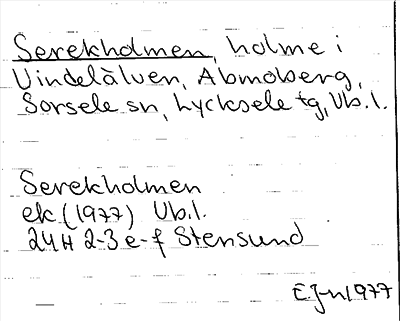 Serekholmen, holme i
Vindelälven, Abmoberg,
Sorsele sn, Lycksele tg, Vb.l.
Serekholmen
ek (1977) Vb.l.
24H 2-3 e-f Stensund
1977